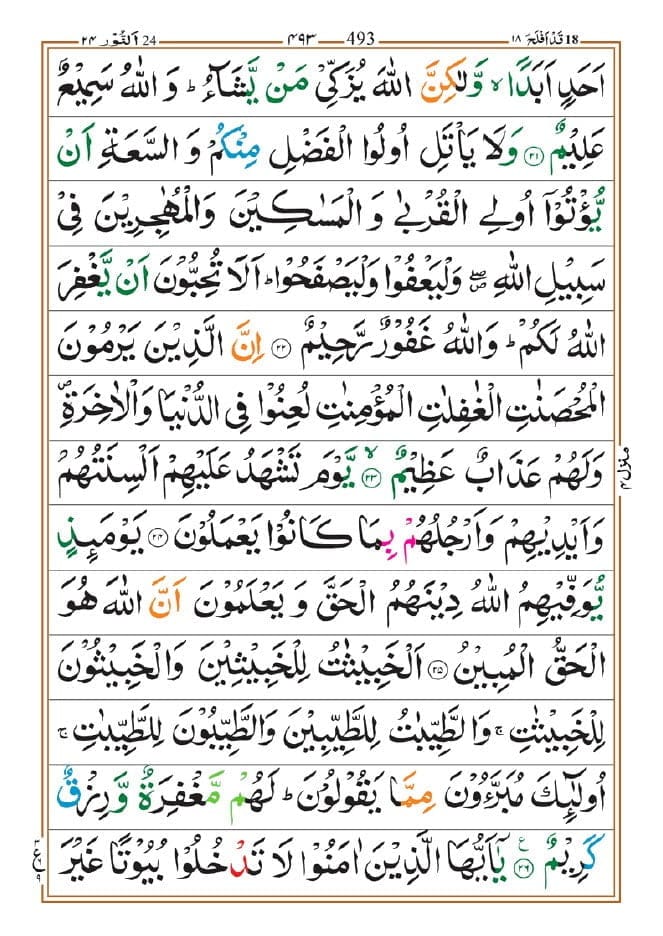 18 قَدْ اَفْلَحَ ١٨ 493 ٤٩٣ 24 اَلنُّوْر ٢٤
اَحَدٍ اَبَدًا ۙ وَّلٰكِنَّ اللّٰهَ يُزَكِّيْ مَنْ يَّشَآءُ ؕ وَ اللّٰهُ سَمِيْعٌ
عَلِيْمٌ ۝٢١ وَلَا يَاْتَلِ اُولُوا الْفَضْلِ مِنْكُمْ وَ السَّعَةِ اَنْ
يُّؤْتُوْۤا اُولِي الْقُرْبٰى وَ الْمَسٰكِيْنَ وَالْمُهٰجِرِيْنَ فِيْ
سَبِيْلِ اللّٰهِ ۪ۖ وَلْيَعْفُوْا وَلْيَصْفَحُوْا ؕ اَلَا تُحِبُّوْنَ اَنْ يَّغْفِرَ
اللّٰهُ لَكُمْ ؕ وَاللّٰهُ غَفُوْرٌ رَّحِيْمٌ ۝٢٢ اِنَّ الَّذِيْنَ يَرْمُوْنَ
الْمُحْصَنٰتِ الْغٰفِلٰتِ الْمُؤْمِنٰتِ لُعِنُوْا فِي الدُّنْيَا وَالْاٰخِرَةِ ۪
وَلَهُمْ عَذَابٌ عَظِيْمٌ ۝٢٣ۙ يَّوْمَ تَشْهَدُ عَلَيْهِمْ اَلْسِنَتُهُمْ
وَاَيْدِيْهِمْ وَاَرْجُلُهُمْ بِمَا كَانُوْا يَعْمَلُوْنَ ۝٢٤ يَوْمَىِٕذٍ
يُّوَفِّيْهِمُ اللّٰهُ دِيْنَهُمُ الْحَقَّ وَ يَعْلَمُوْنَ اَنَّ اللّٰهَ هُوَ
الْحَقُّ الْمُبِيْنُ ۝٢٥ اَلْخَبِيْثٰتُ لِلْخَبِيْثِيْنَ وَالْخَبِيْثُوْنَ
لِلْخَبِيْثٰتِ ۚ وَالطَّيِّبٰتُ لِلطَّيِّبِيْنَ وَالطَّيِّبُوْنَ لِلطَّيِّبٰتِ ۚ
اُولٰٓىِٕكَ مُبَرَّءُوْنَ مِمَّا يَقُوْلُوْنَ ؕ لَهُمْ مَّغْفِرَةٌ وَّرِزْقٌ
كَرِيْمٌ ۝٢٦ۧ يٰۤاَيُّهَا الَّذِيْنَ اٰمَنُوْا لَا تَدْخُلُوْا بُيُوْتًا غَيْرَ
منزل ٤